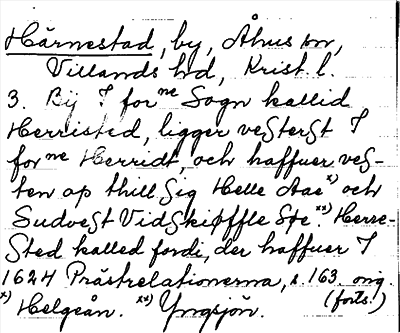 Härnestad, by, Åhus sn,
Villands hd, Krist. l.
3. Bÿ I forne Sogn kallid
Herristed, ligger vesterst I
forne Herridt, och haffuer ves-
ten op thill sig Helle Aae x) och
Sudvest Vidskiøffle Søe xx) Herre-
sted kalled fordi, der haffuer I
1624 Prästrelationerna, s. 163 orig.
x) Helgeån. xx) Yngsjön. (forts.)